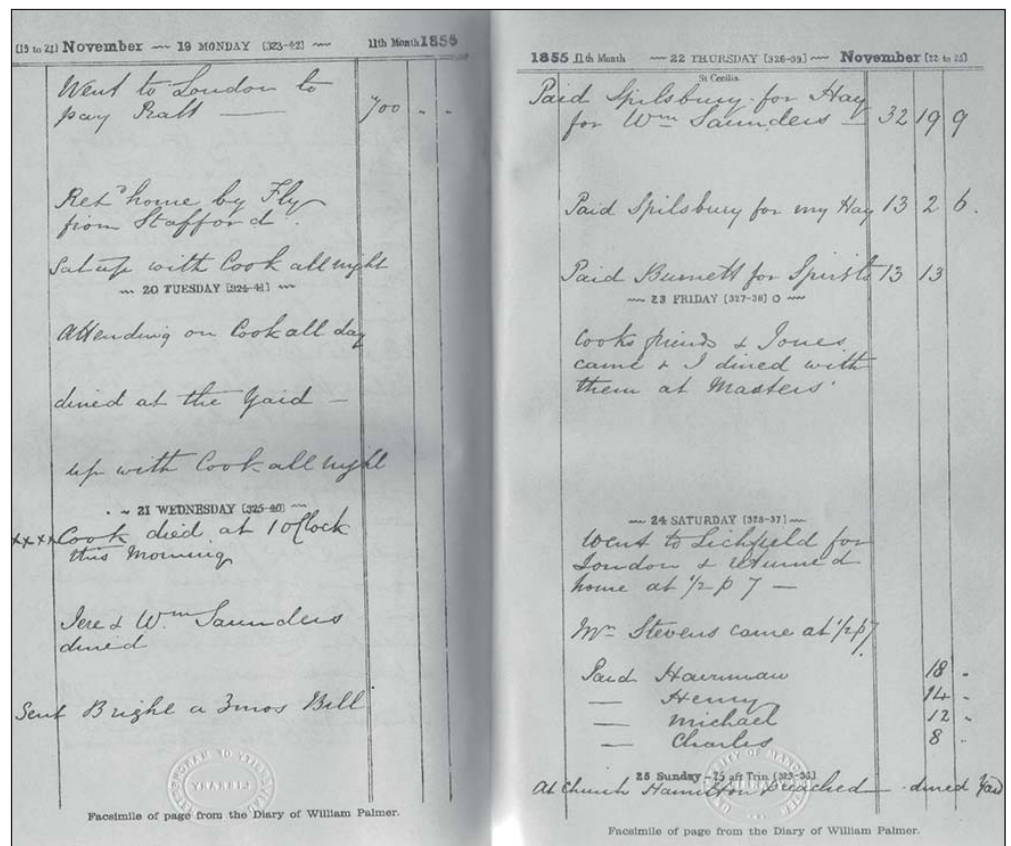 [19 to 21] November ~ 19 MONDAY [323-42] ~ 11th Month 1855
Went to London to
pay Pratt — 700 . .
Retd home by Fly
from Stafford.
Sat up with Cook all night
~ 20 TUESDAY [324-41] ~
Attending on Cook all day
dined at the Yard —
up with Cook all night
~ 21 WEDNESDAY [325-40] ~
xxxx Cook died at 1 oClock
this Morning
Jere & Wm Saunders
dined
Sent Bright a 3mos Bill
Facsimile of page from the Diary of William Palmer.
1855 11th Month ~ 22 THURSDAY [326-39] ~ November [22 to 25]
St Cecilia.
Paid Spilsbury for Hay
for Wm Saunders — 32 19 9
Paid Spilsbury for my Hay 13 2 6.
Paid Burnett for Spirits 13 13
~ 23 FRIDAY [327-38] O ~
Cooks friends & Jones
came & I dined with
them at Masters'
~ 24 SATURDAY [328-37] ~
Went to Lichfield for
London & returned
home at 1/2 p 7 —
Mr Stevens came at 1/2 p 7
Paid 18 .
— Henry 14 .
— Michael 12 .
— Charles 8 .
25 Sunday - 25 aft Trin. [329-36]
At Church Hamilton preached - dined Yard
Facsimile of page from the Diary of William Palmer.